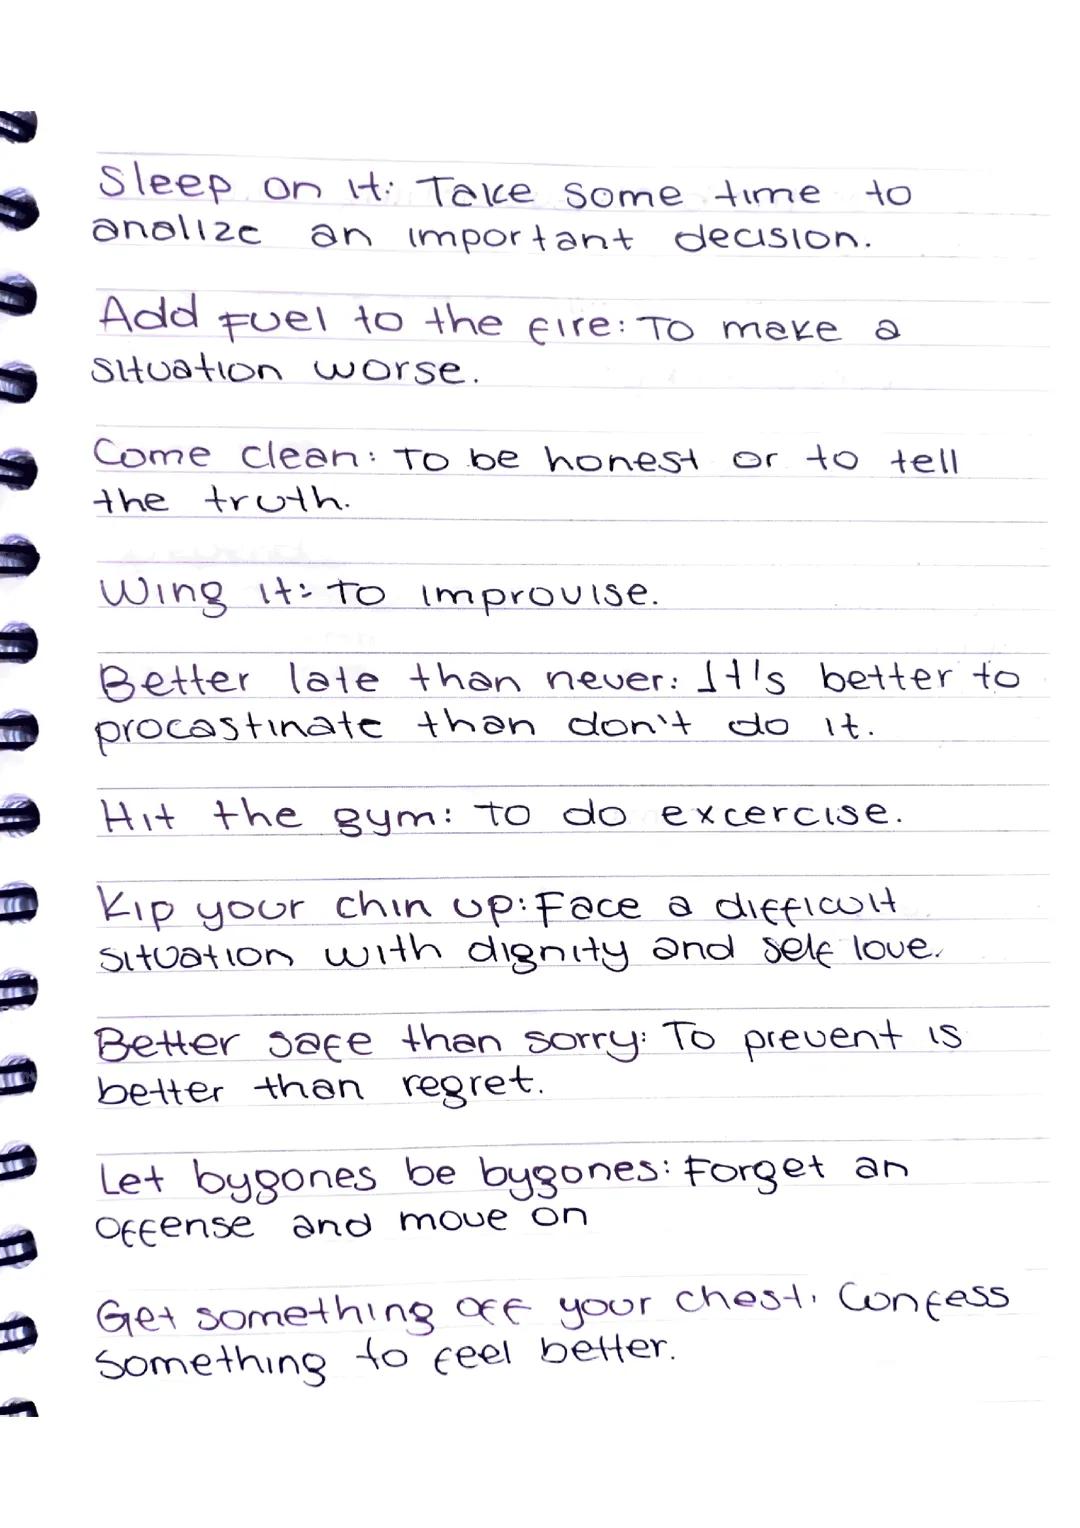 Sleep on it: Take some time to
analize an important decision.
Add fuel to the fire: To make a
situation worse.
Come clean: To be honest or to tell
the truth.
Wing it: To improvise.
Better late than never: It's better to
procastinate than don't do it.
Hit the gym: to do excercise.
Kip your chin up: Face a difficult
situation with dignity and self love.
Better safe than sorry: To prevent is
better than regret.
Let bygones be bygones: Forget an
offense and move on
Get something off your chest. Confess
something to feel better.